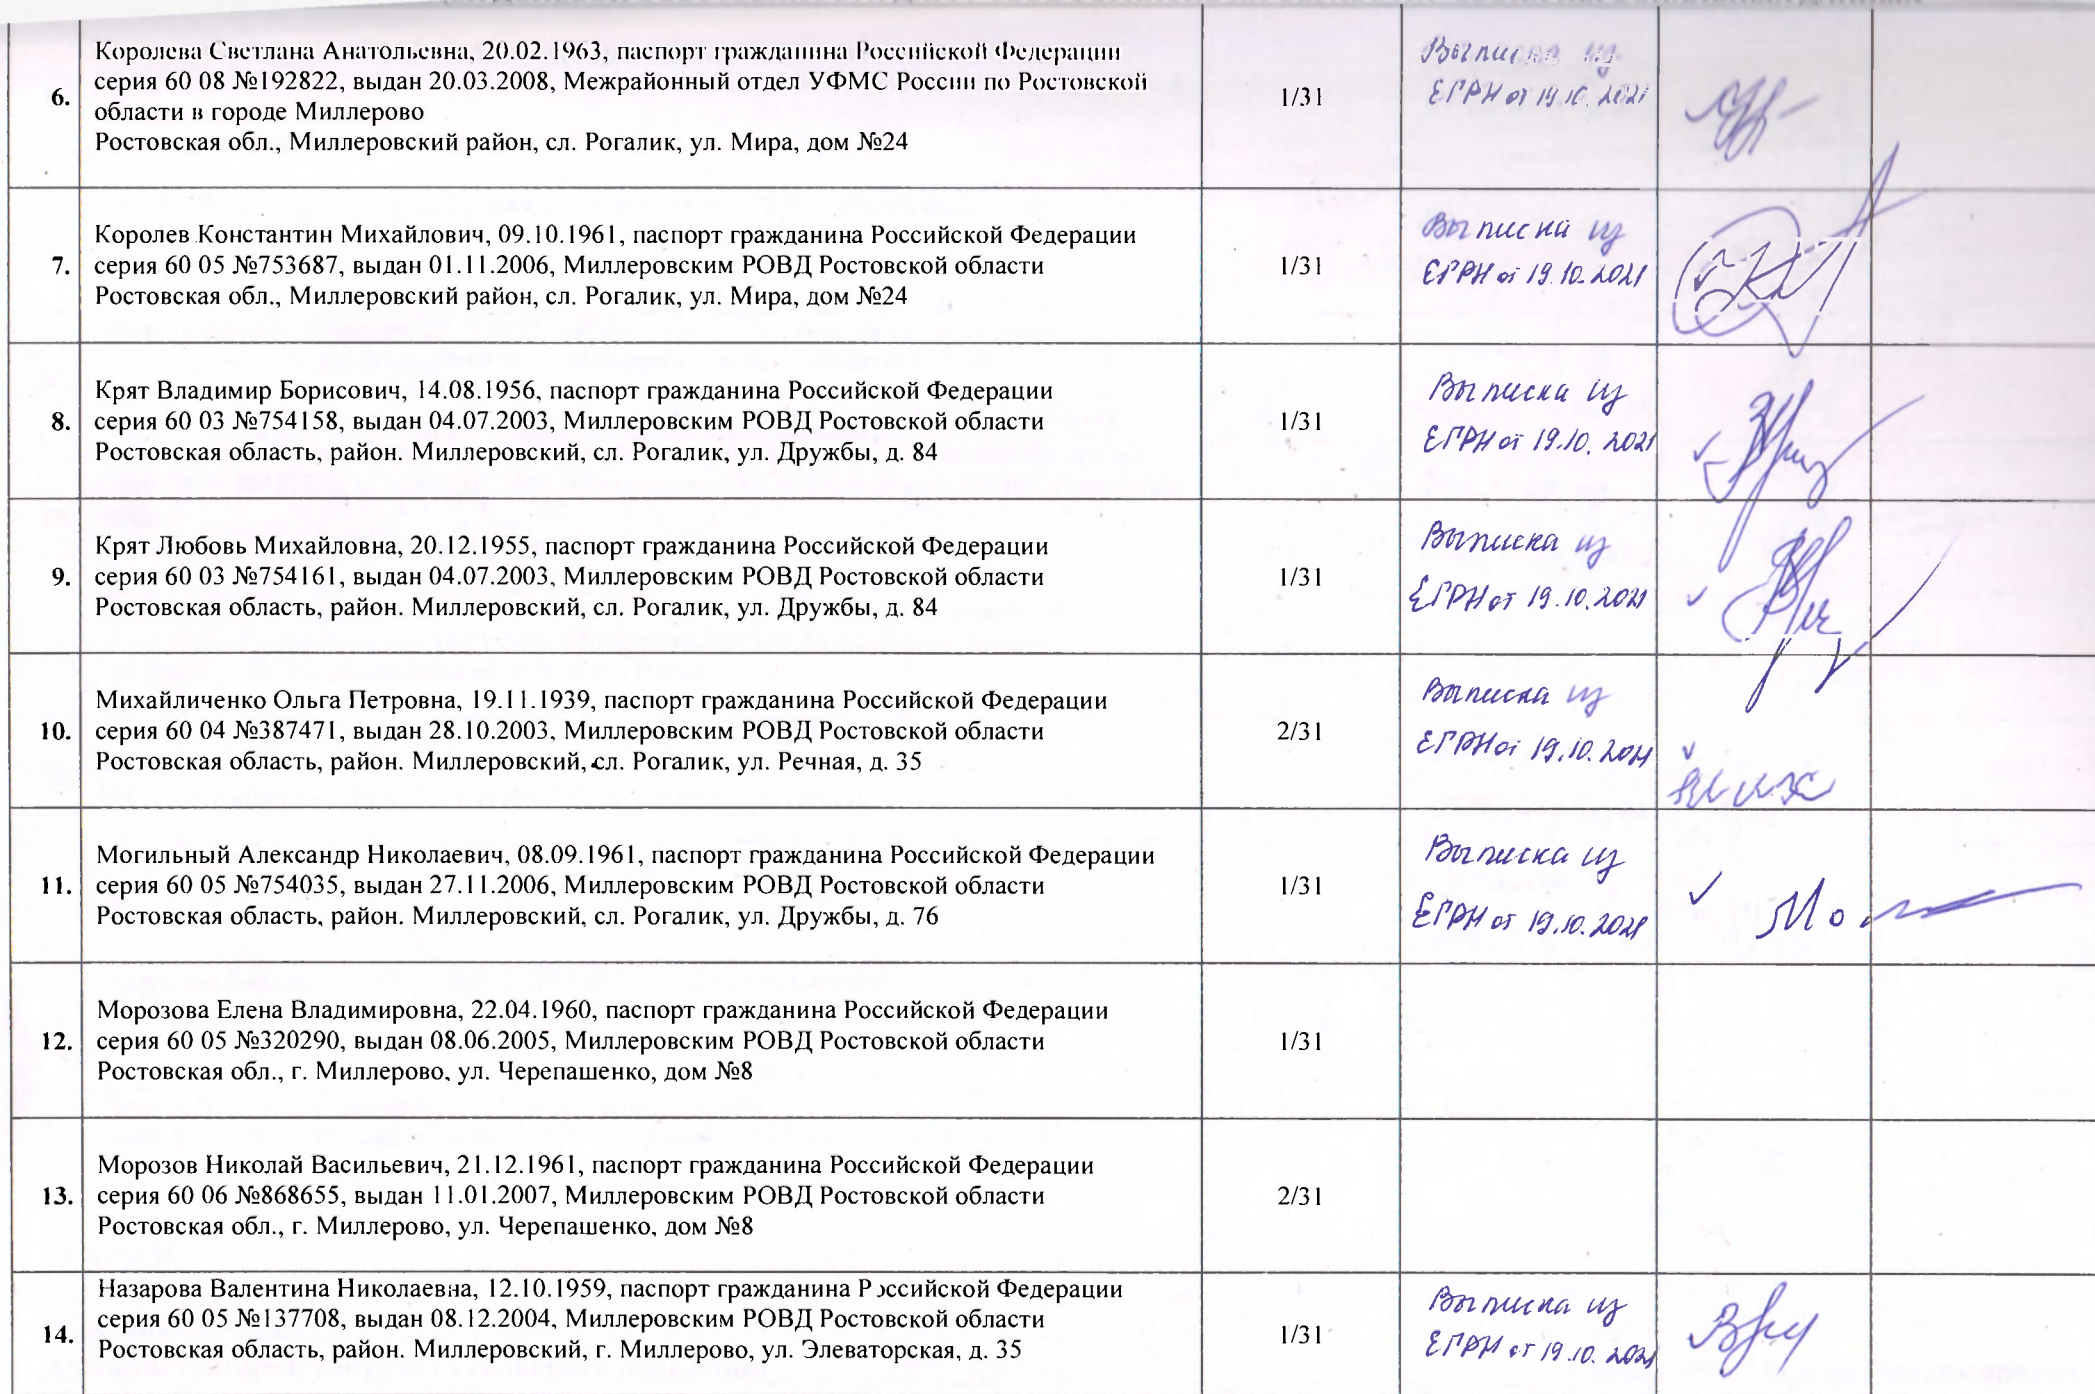 6.
Королева Светлана Анатольевна, 20.02.1963, паспорт гражданина Российской Федерации
серия 60 08 №192822, выдан 20.03.2008, Межрайонный отдел УФМС России по Ростовской
области в городе Миллерово
Ростовская обл., Миллеровский район, сл. Рогалик, ул. Мира, дом №24
1/31
Выписка из
ЕГРН от 19.10.2021
7.
Королев Константин Михайлович, 09.10.1961, паспорт гражданина Российской Федерации
серия 60 05 №753687, выдан 01.11.2006, Миллеровским РОВД Ростовской области
Ростовская обл., Миллеровский район, сл. Рогалик, ул. Мира, дом №24
1/31
Выписка из
ЕГРН от 19.10.2021
8.
Крят Владимир Борисович, 14.08.1956, паспорт гражданина Российской Федерации
серия 60 03 №754158, выдан 04.07.2003, Миллеровским РОВД Ростовской области
Ростовская область, район. Миллеровский, сл. Рогалик, ул. Дружбы, д. 84
1/31
Выписка из
ЕГРН от 19.10.2021
9.
Крят Любовь Михайловна, 20.12.1955, паспорт гражданина Российской Федерации
серия 60 03 №754161, выдан 04.07.2003, Миллеровским РОВД Ростовской области
Ростовская область, район. Миллеровский, сл. Рогалик, ул. Дружбы, д. 84
1/31
Выписка из
ЕГРН от 19.10.2021
10.
Михайличенко Ольга Петровна, 19.11.1939, паспорт гражданина Российской Федерации
серия 60 04 №387471, выдан 28.10.2003, Миллеровским РОВД Ростовской области
Ростовская область, район. Миллеровский, сл. Рогалик, ул. Речная, д. 35
2/31
Выписка из
ЕГРН от 19.10.2021
11.
Могильный Александр Николаевич, 08.09.1961, паспорт гражданина Российской Федерации
серия 60 05 №754035, выдан 27.11.2006, Миллеровским РОВД Ростовской области
Ростовская область, район. Миллеровский, сл. Рогалик, ул. Дружбы, д. 76
1/31
Выписка из
ЕГРН от 19.10.2021
12.
Морозова Елена Владимировна, 22.04.1960, паспорт гражданина Российской Федерации
серия 60 05 №320290, выдан 08.06.2005, Миллеровским РОВД Ростовской области
Ростовская обл., г. Миллерово, ул. Черепашенко, дом №8
1/31
13.
Морозов Николай Васильевич, 21.12.1961, паспорт гражданина Российской Федерации
серия 60 06 №868655, выдан 11.01.2007, Миллеровским РОВД Ростовской области
Ростовская обл., г. Миллерово, ул. Черепашенко, дом №8
2/31
14.
Назарова Валентина Николаевна, 12.10.1959, паспорт гражданина Российской Федерации
серия 60 05 №137708, выдан 08.12.2004, Миллеровским РОВД Ростовской области
Ростовская область, район. Миллеровский, г. Миллерово, ул. Элеваторская, д. 35
1/31
Выписка из
ЕГРН от 19.10.2021